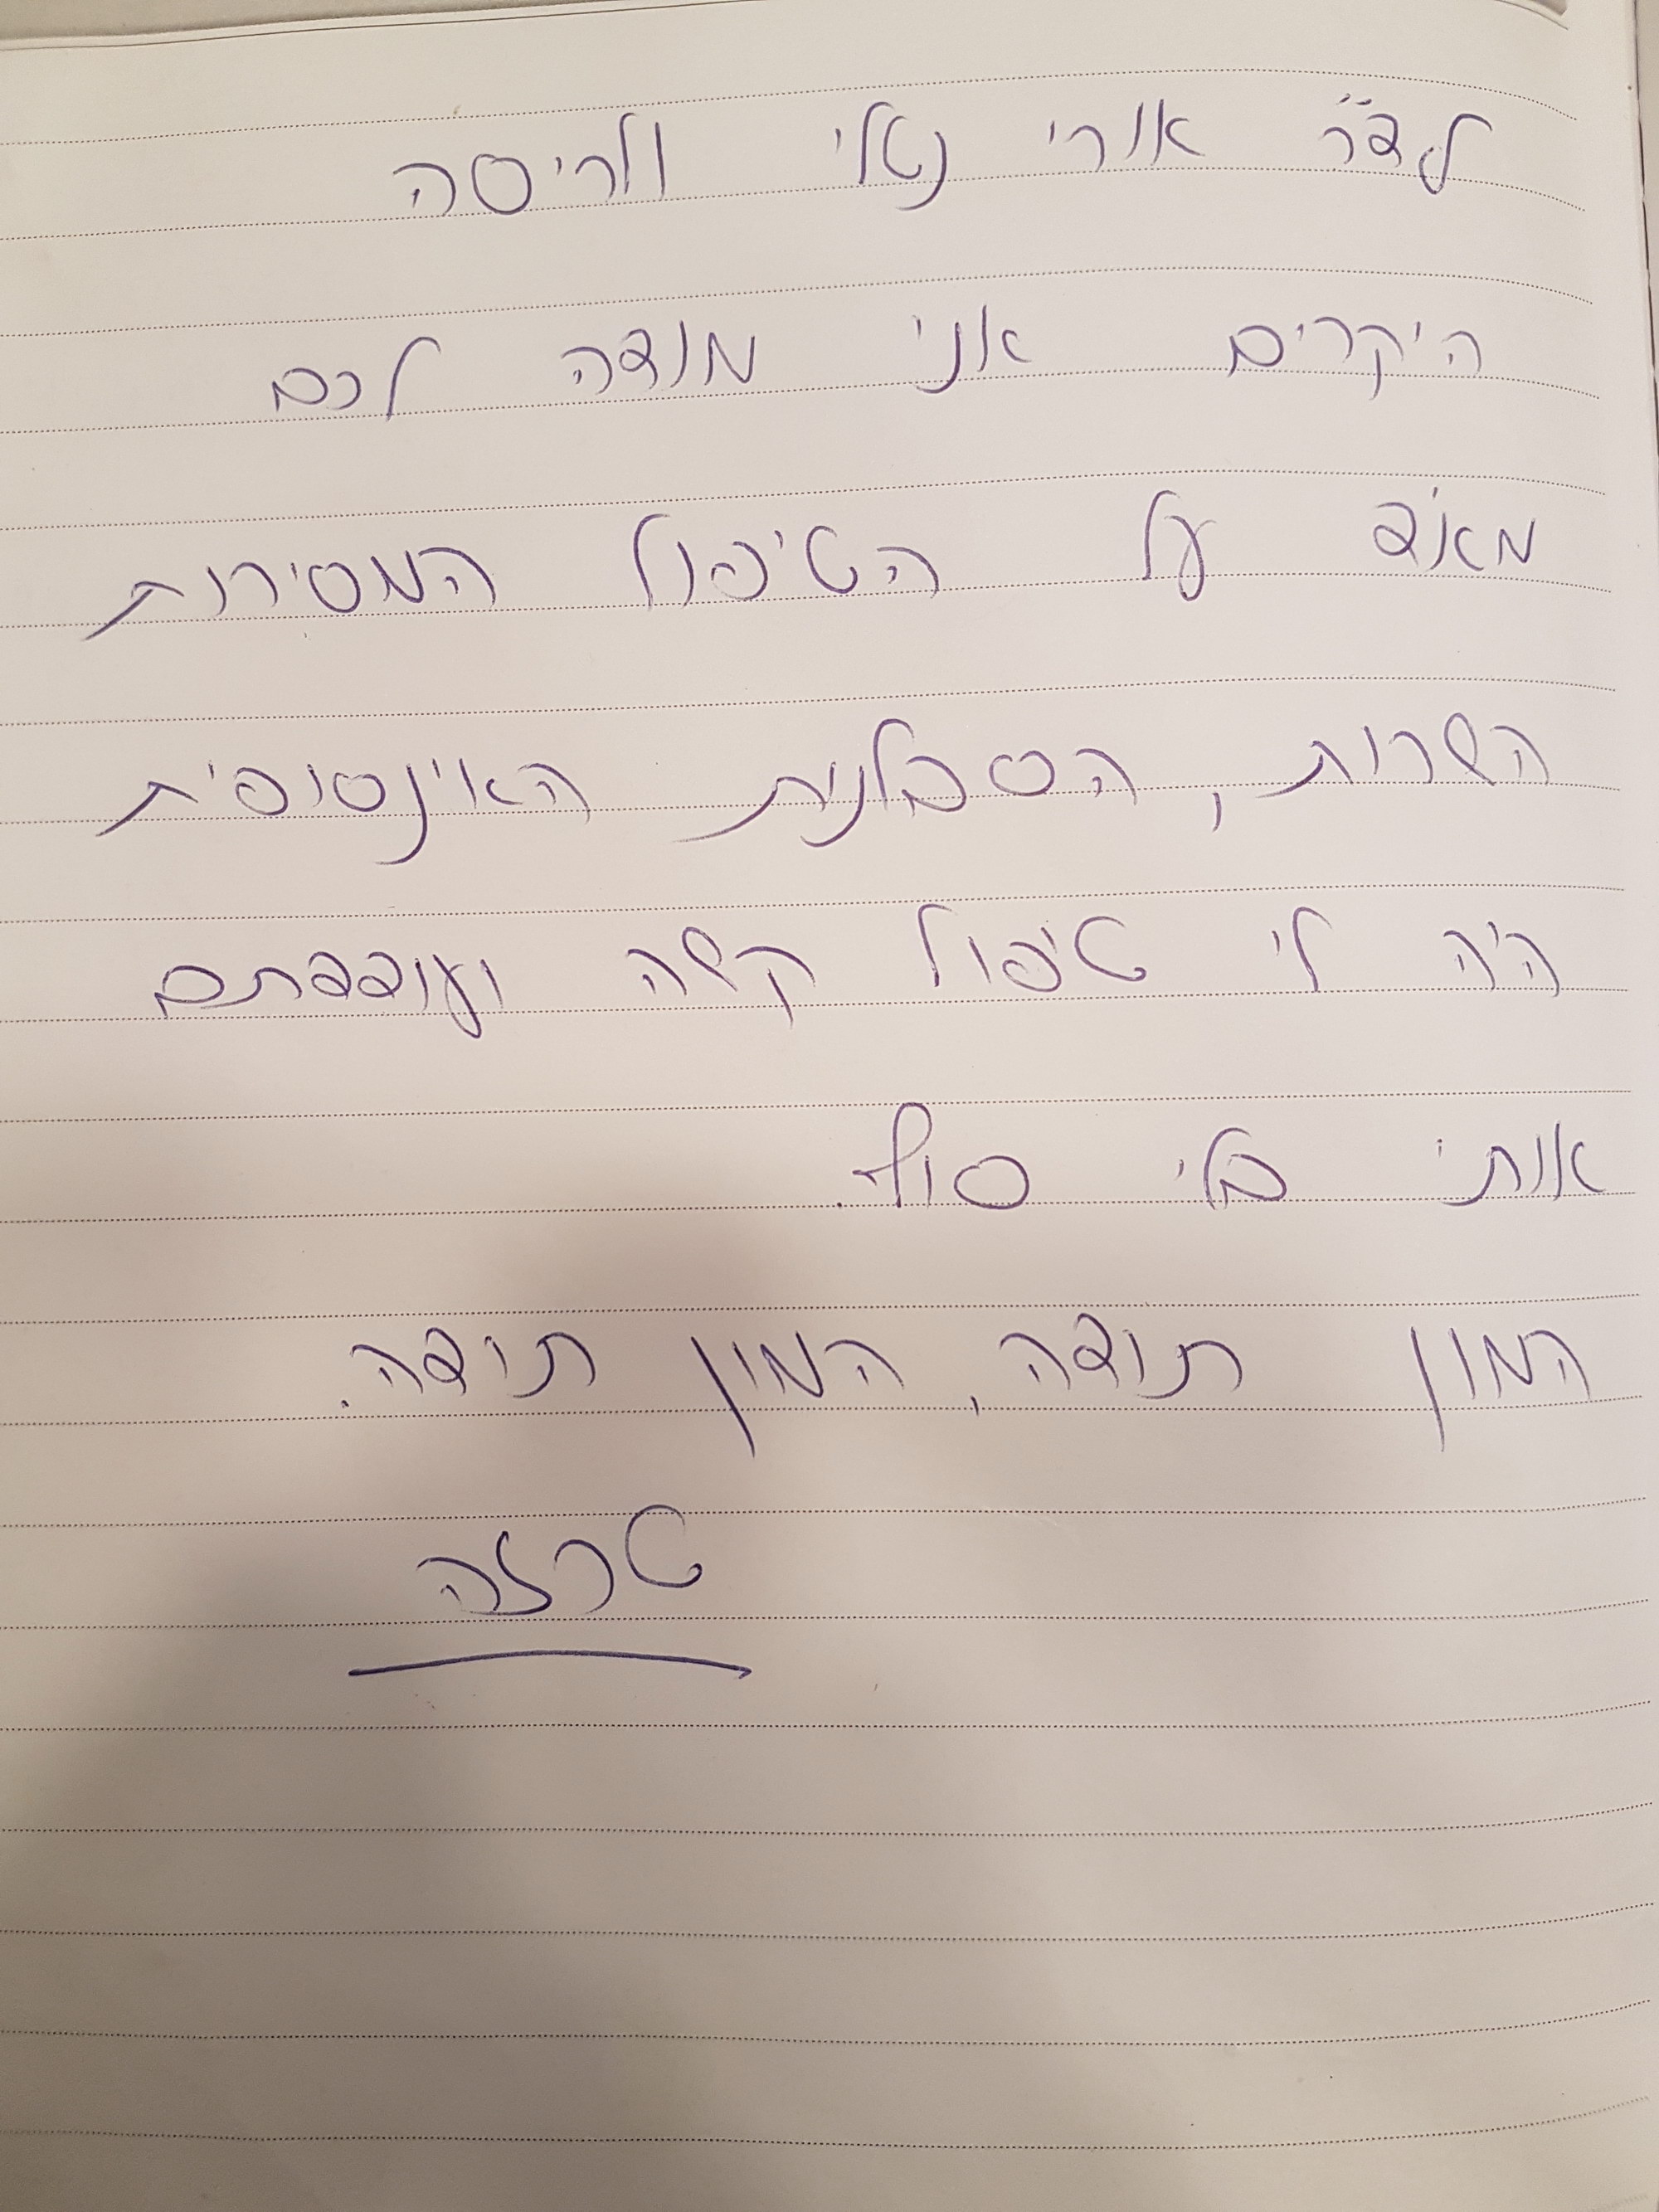 לד״ר אורי נטלי ולריסה
היקרים אני מודה לכם
מאוד על הטיפול המסירות
השרות, הסבלנות האינסופית
היה לי טיפול קשה ועודדתם
אותי בלי סוף.
המון תודה, המון תודה.
טרזה